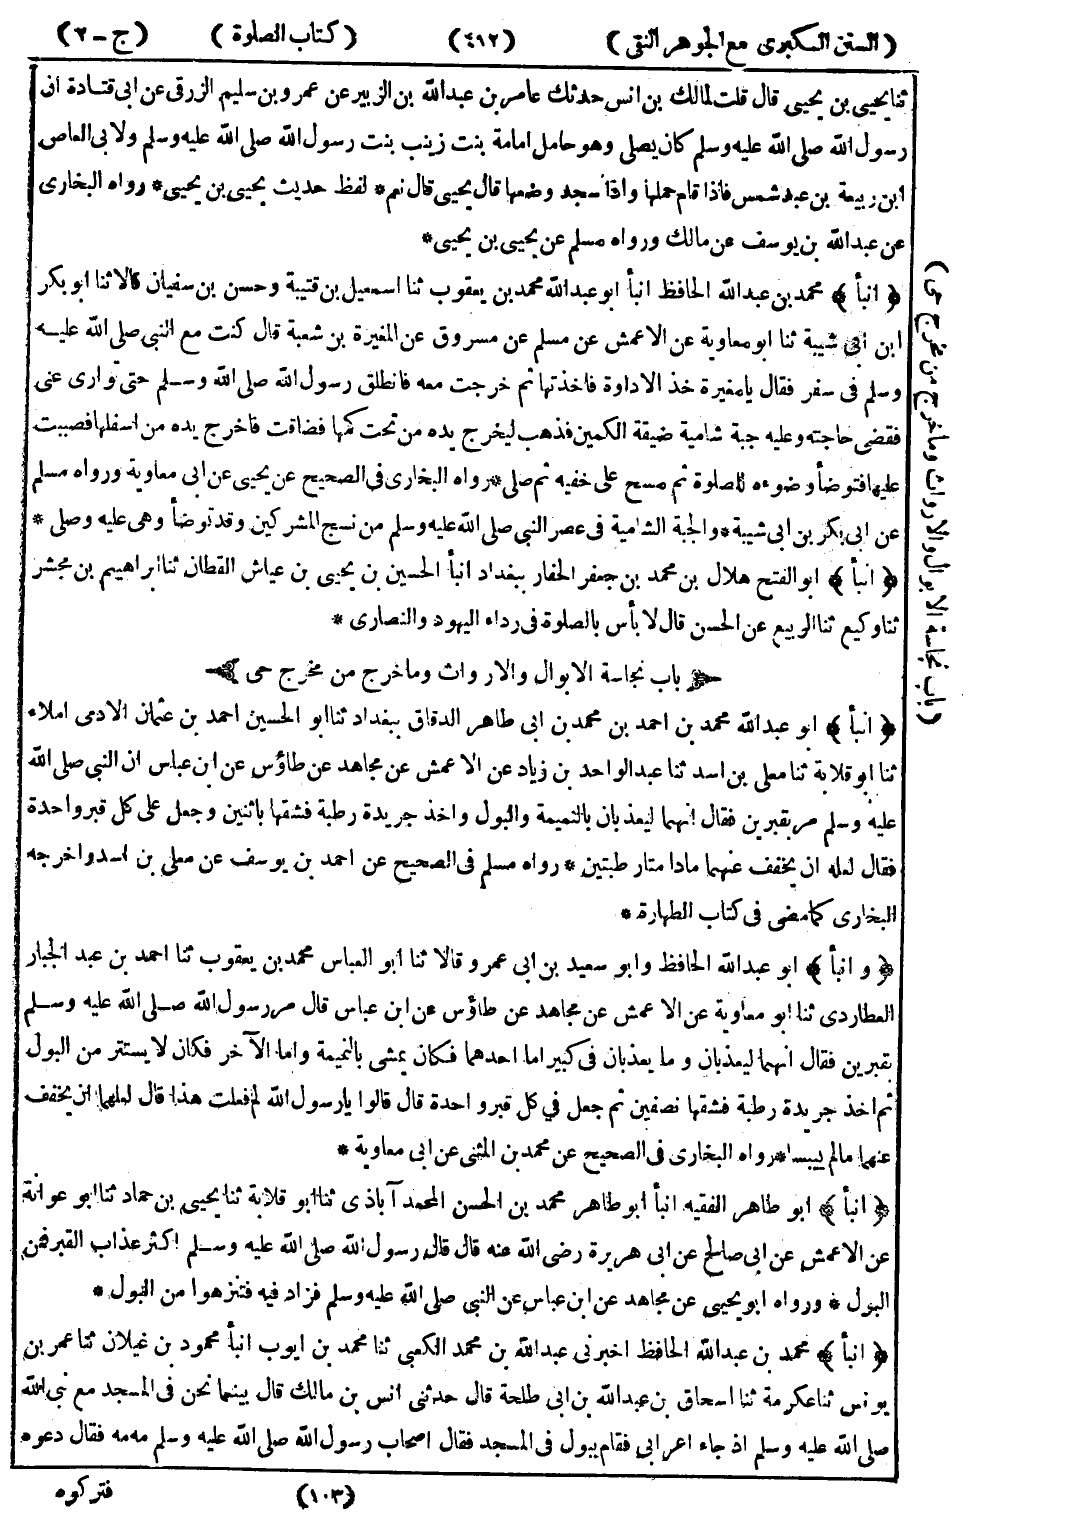 (السنن الكبرى مع الجوهر النقى) (٤١٢) (كتاب الصلوة) (ج - ٢)
ثنا يحيى بن يحيى قال قلت لمالك بن انس حدثك عامر بن عبدالله بن الزبير عن عمرو بن سليم الزرقى عن ابى قتادة ان
رسول الله صلى الله عليه وسلم كان يصلى وهو حامل امامة بنت زينب بنت رسول الله صلى الله عليه وسلم ولابى العاص
ابن ربيعة بن عبد شمس فاذا قام حملها واذا سجد وضعها قال يحيى قال نعم * لفظ حديث يحيى بن يحيى * رواه البخارى
عن عبدالله بن يوسف عن مالك ورواه مسلم عن يحيى بن يحيى *
﴿ انبأ ﴾ محمد بن عبدالله الحافظ انبأ ابو عبدالله محمد بن يعقوب ثنا اسمعيل بن قتيبة وحسن بن سفيان قالا ثنا ابو بكر
ابن ابى شيبة ثنا ابو معاوية عن الاعمش عن مسلم عن مسروق عن المغيرة بن شعبة قال كنت مع النبى صلى الله عليه
وسلم فى سفر فقال يا مغيرة خذ الاداوة فاخذتها ثم خرجت معه فانطلق رسول الله صلى الله وسلم حتى توارى عنى
فقضى حاجته وعليه جبة شامية ضيقة الكمين فذهب ليخرج يده من تحت كمها فضاقت فاخرج يده من اسفلها فصببت
عليه فتوضأ وضوءه للصلوة ثم مسح على خفيه ثم صلى * رواه البخارى فى الصحيح عن يحيى عن ابى معاوية ورواه مسلم
عن ابى بكر بن ابى شيبة * والجبة الشامية فى عصر النبى صلى الله عليه وسلم من نسج المشركين وقد توضأ وهى عليه وصلى *
﴿ انبأ ﴾ ابو الفتح هلال بن محمد بن جعفر الحفار ببغداد انبأ الحسين بن يحيى بن عياش القطان ثنا ابراهيم بن مجشر
ثنا وكيع ثنا الربيع عن الحسن قال لا بأس بالصلوة فى رداء اليهود والنصارى *
﴿ باب نجاسة الابوال والارواث وما خرج من مخرج حى ﴾
﴿ انبأ ﴾ ابو عبدالله محمد بن احمد بن محمد بن ابى طاهر الدقاق ببغداد ثنا ابو الحسين احمد بن عثمان الادمى املاء
ثنا ابو قلابة ثنا معلى بن اسد ثنا عبدالواحد بن زياد عن الاعمش عن مجاهد عن طاؤس عن ابن عباس ان النبى صلى الله
عليه وسلم مر بقبرين فقال انهما ليعذبان بالنميمة والبول واخذ جريدة رطبة فشقها باثنين وجعل على كل قبر واحدة
فقال لعله ان يخفف عنهما مادامتا رطبتين * رواه مسلم فى الصحيح عن احمد بن يوسف عن معلى بن اسد واخرجه
البخارى كما مضى فى كتاب الطهارة *
﴿ و انبأ ﴾ ابو عبدالله الحافظ وابو سعيد بن ابى عمرو قالا ثنا ابو العباس محمد بن يعقوب ثنا احمد بن عبد الجبار
العطاردى ثنا ابو معاوية عن الاعمش عن مجاهد عن طاؤس عن ابن عباس قال مر رسول الله صلى الله عليه وسلم
بقبرين فقال انهما ليعذبان و ما يعذبان فى كبير اما احدهما فكان يمشى بالنميمة واما الآخر فكان لا يستتر من البول
ثم اخذ جريدة رطبة فشقها نصفين ثم جعل في كل قبر واحدة قال قالوا يا رسول الله لم فعلت هذا قال لعلهما ان يخفف
عنهما مالم ييبسا * رواه البخارى فى الصحيح عن محمد بن المثنى عن ابى معاوية *
﴿ انبأ ﴾ ابو طاهر الفقيه انبأ ابو طاهر محمد بن الحسن المحمد آباذى ثنا ابو قلابة ثنا يحيى بن حماد ثنا ابو عوانة
عن الاعمش عن ابى صالح عن ابى هريرة رضى الله عنه قال قال رسول الله صلى الله عليه وسلم اكثر عذاب القبر من
البول * ورواه ابو يحيى عن مجاهد عن ابن عباس عن النبى صلى الله عليه وسلم فزاد فيه فتنزهوا من البول *
﴿ انبأ ﴾ محمد بن عبدالله الحافظ اخبرنى عبدالله بن محمد الكعبى ثنا محمد بن ايوب انبأ محمود بن غيلان ثنا عمر بن
يونس ثنا عكرمة ثنا اسحاق بن عبدالله بن ابى طلحة قال حدثنى انس بن مالك قال بينما نحن فى المسجد مع نبى الله
صلى الله عليه وسلم اذ جاء اعرابى فقام يبول فى المسجد فقال اصحاب رسول الله صلى الله عليه وسلم مه مه فقال دعوه
(١٠٣) فتركوه
(باب نجاسة الابوال والارواث وما خرج من مخرج حى)